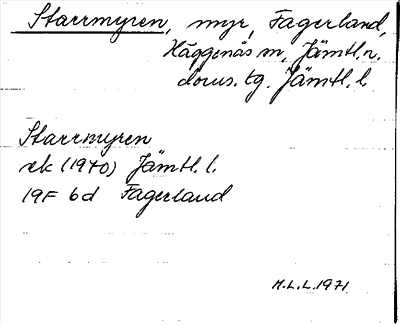 Starrmyren, myr, Fagerland,
Häggenås sn, Jämtl. n.
doms. tg. Jämtl. l.
Starrmyren
ek (1970) Jämtl. l.
19F 6d Fagerland
M.L.L. 1971